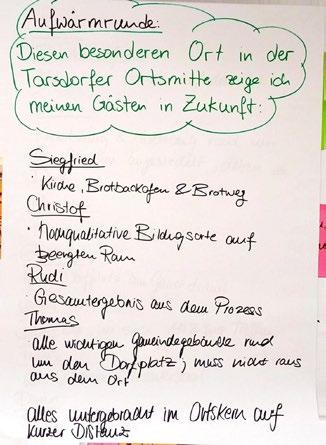 Aufwärmrunde:
Diesen besonderen Ort in der
Tarsdorfer Ortsmitte zeige ich
meinen Gästen in Zukunft:
Siegfried
· Kirche, Brotbackofen & Brotweg
Christof
· Hochqualitative Bildungsorte auf
beengten Raum
Rudi
· Gesamtergebnis aus dem Prozess
Thomas
· alle wichtigen Gemeindegebäude rund
um den Dorfplatz, muss nicht raus
aus dem Ort
alles untergebracht im Ortskern auf
kurzer Distanz